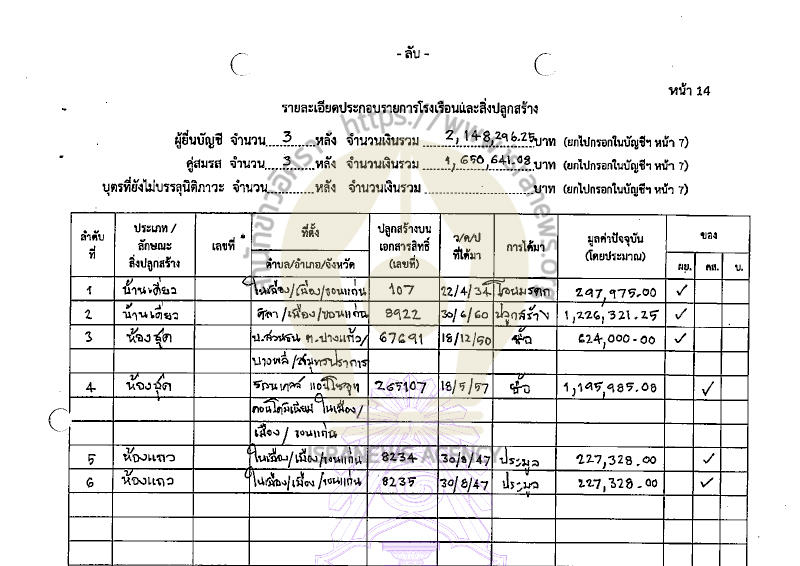 - ลับ -
หน้า 14
รายละเอียดประกอบรายการโรงเรือนและสิ่งปลูกสร้าง
ผู้ยื่นบัญชี จำนวน 3 หลัง จำนวนเงินรวม 2,148,296.25 บาท (ยกไปกรอกในบัญชีฯ หน้า 7)
คู่สมรส จำนวน 3 หลัง จำนวนเงินรวม 1,650,641.08 บาท (ยกไปกรอกในบัญชีฯ หน้า 7)
บุตรที่ยังไม่บรรลุนิติภาวะ จำนวน หลัง จำนวนเงินรวม บาท (ยกไปกรอกในบัญชีฯ หน้า 7)
ลำดับที่ ประเภท / ลักษณะ สิ่งปลูกสร้าง เลขที่ ที่ตั้ง ตำบล/อำเภอ/จังหวัด ปลูกสร้างบนเอกสารสิทธิ์ (เลขที่) ว/ด/ป ที่ได้มา การได้มา มูลค่าปัจจุบัน (โดยประมาณ) ของ ผย. คส. บ.
1 บ้านเดี่ยว ในเมือง/เมือง/ขอนแก่น 107 22/4/34 โอนมรดก 297,975.00 ✓
2 บ้านเดี่ยว ศิลา/เมือง/ขอนแก่น 8922 30/6/60 ปลูกสร้าง 1,226,321.25 ✓
3 ห้องชุด ต.บางแก้ว/ 67691 18/12/50 ซื้อ 624,000.00 ✓
บางพลี/สมุทรปราการ
4 ห้องชุด 265107 18/5/57 ซื้อ 1,195,985.08 ✓
คอนโดมิเนียม ในเมือง/
เมือง/ขอนแก่น
5 ห้องแถว ในเมือง/เมือง/ขอนแก่น 8234 30/8/47 ประมูล 227,328.00 ✓
6 ห้องแถว ในเมือง/เมือง/ขอนแก่น 8235 30/8/47 ประมูล 227,328.00 ✓
สำนักข่าวอิศรา https://www.isranews.org
ISRANEWS AGENCY